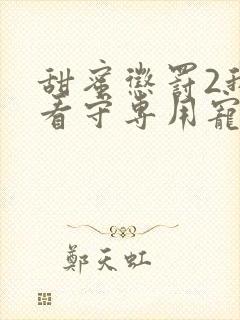 甜蜜懲罰2我
看守專用寵
鄭天虹